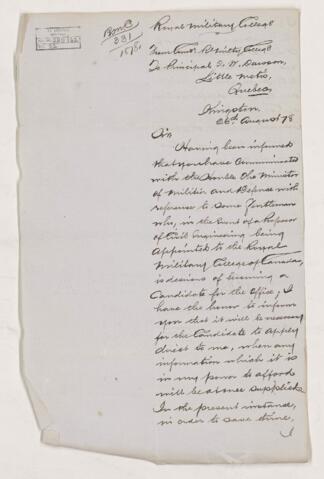 Royal Military College
From Comdt R Military College
To Principal J. W. Dawson,
Little Metis,
Quebec
Kingston
26th August 78
Sir
Having been informed
that you have communicated
with the Honble the Minister
of Militia and Defense with
reference to some Gentleman
who, in the event of a Professor
of Civil Engineering being
Appointed to the Royal
Military College of Canada,
is desirous of becoming a
Candidate for the Office, I
have the honor to inform
you that it will be necessary
for the Candidate to apply
direct to me, when any
information which it is
in my power to afford
will be at once supplied.
In the present instance,
in order to save time,
RMC
331
1878